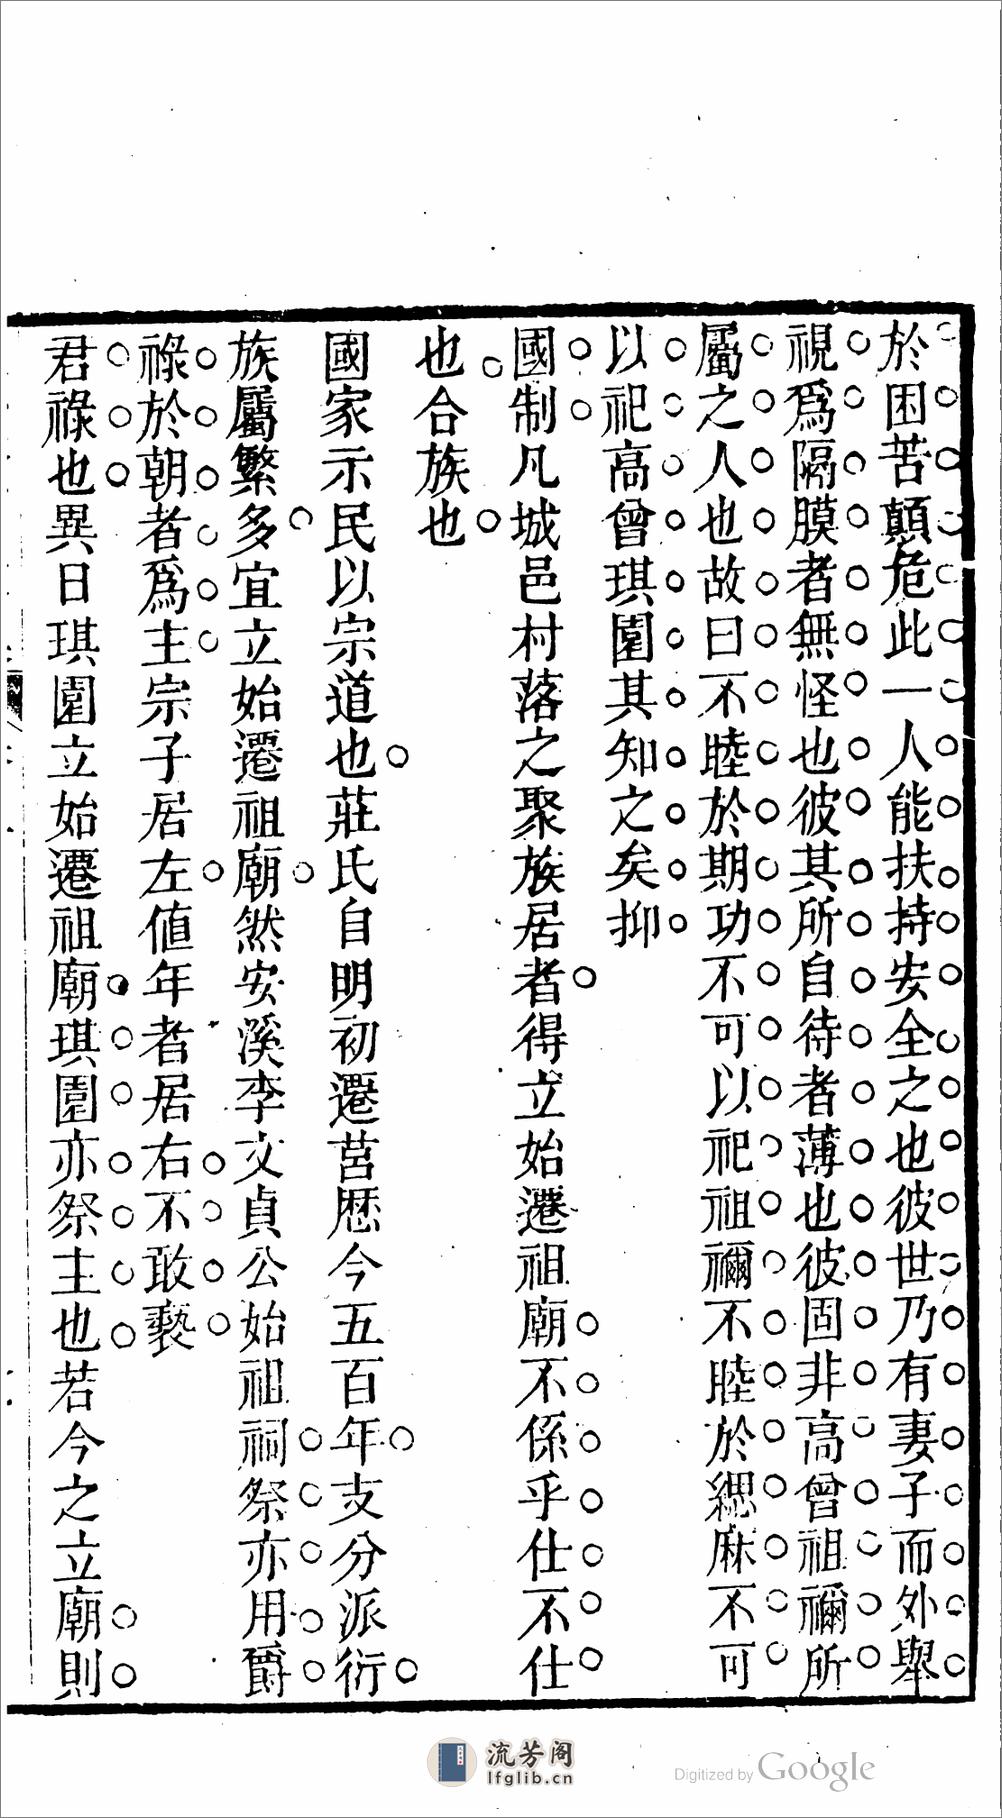 於困苦顛危此一人能扶持安全之也彼世乃有妻子而外舉
視爲隔膜者無怪也彼其所自待者薄也彼固非高曾祖禰所
屬之人也故曰不睦於期功不可以祀祖禰不睦於緦麻不可
以祀高曾琪園其知之矣抑
國制凡城邑村落之聚族居者得立始遷祖廟不係乎仕不仕
也合族也
國家示民以宗道也莊氏自明初遷莒歷今五百年支分派衍
族屬繁多宜立始遷祖廟然安溪李文貞公始祖祠祭亦用爵
祿於朝者爲主宗子居左値年者居右不敢褻
君祿也異日琪園立始遷祖廟琪園亦祭主也若今之立廟則
流芳阁
lfglib.cn
Digitized by Google